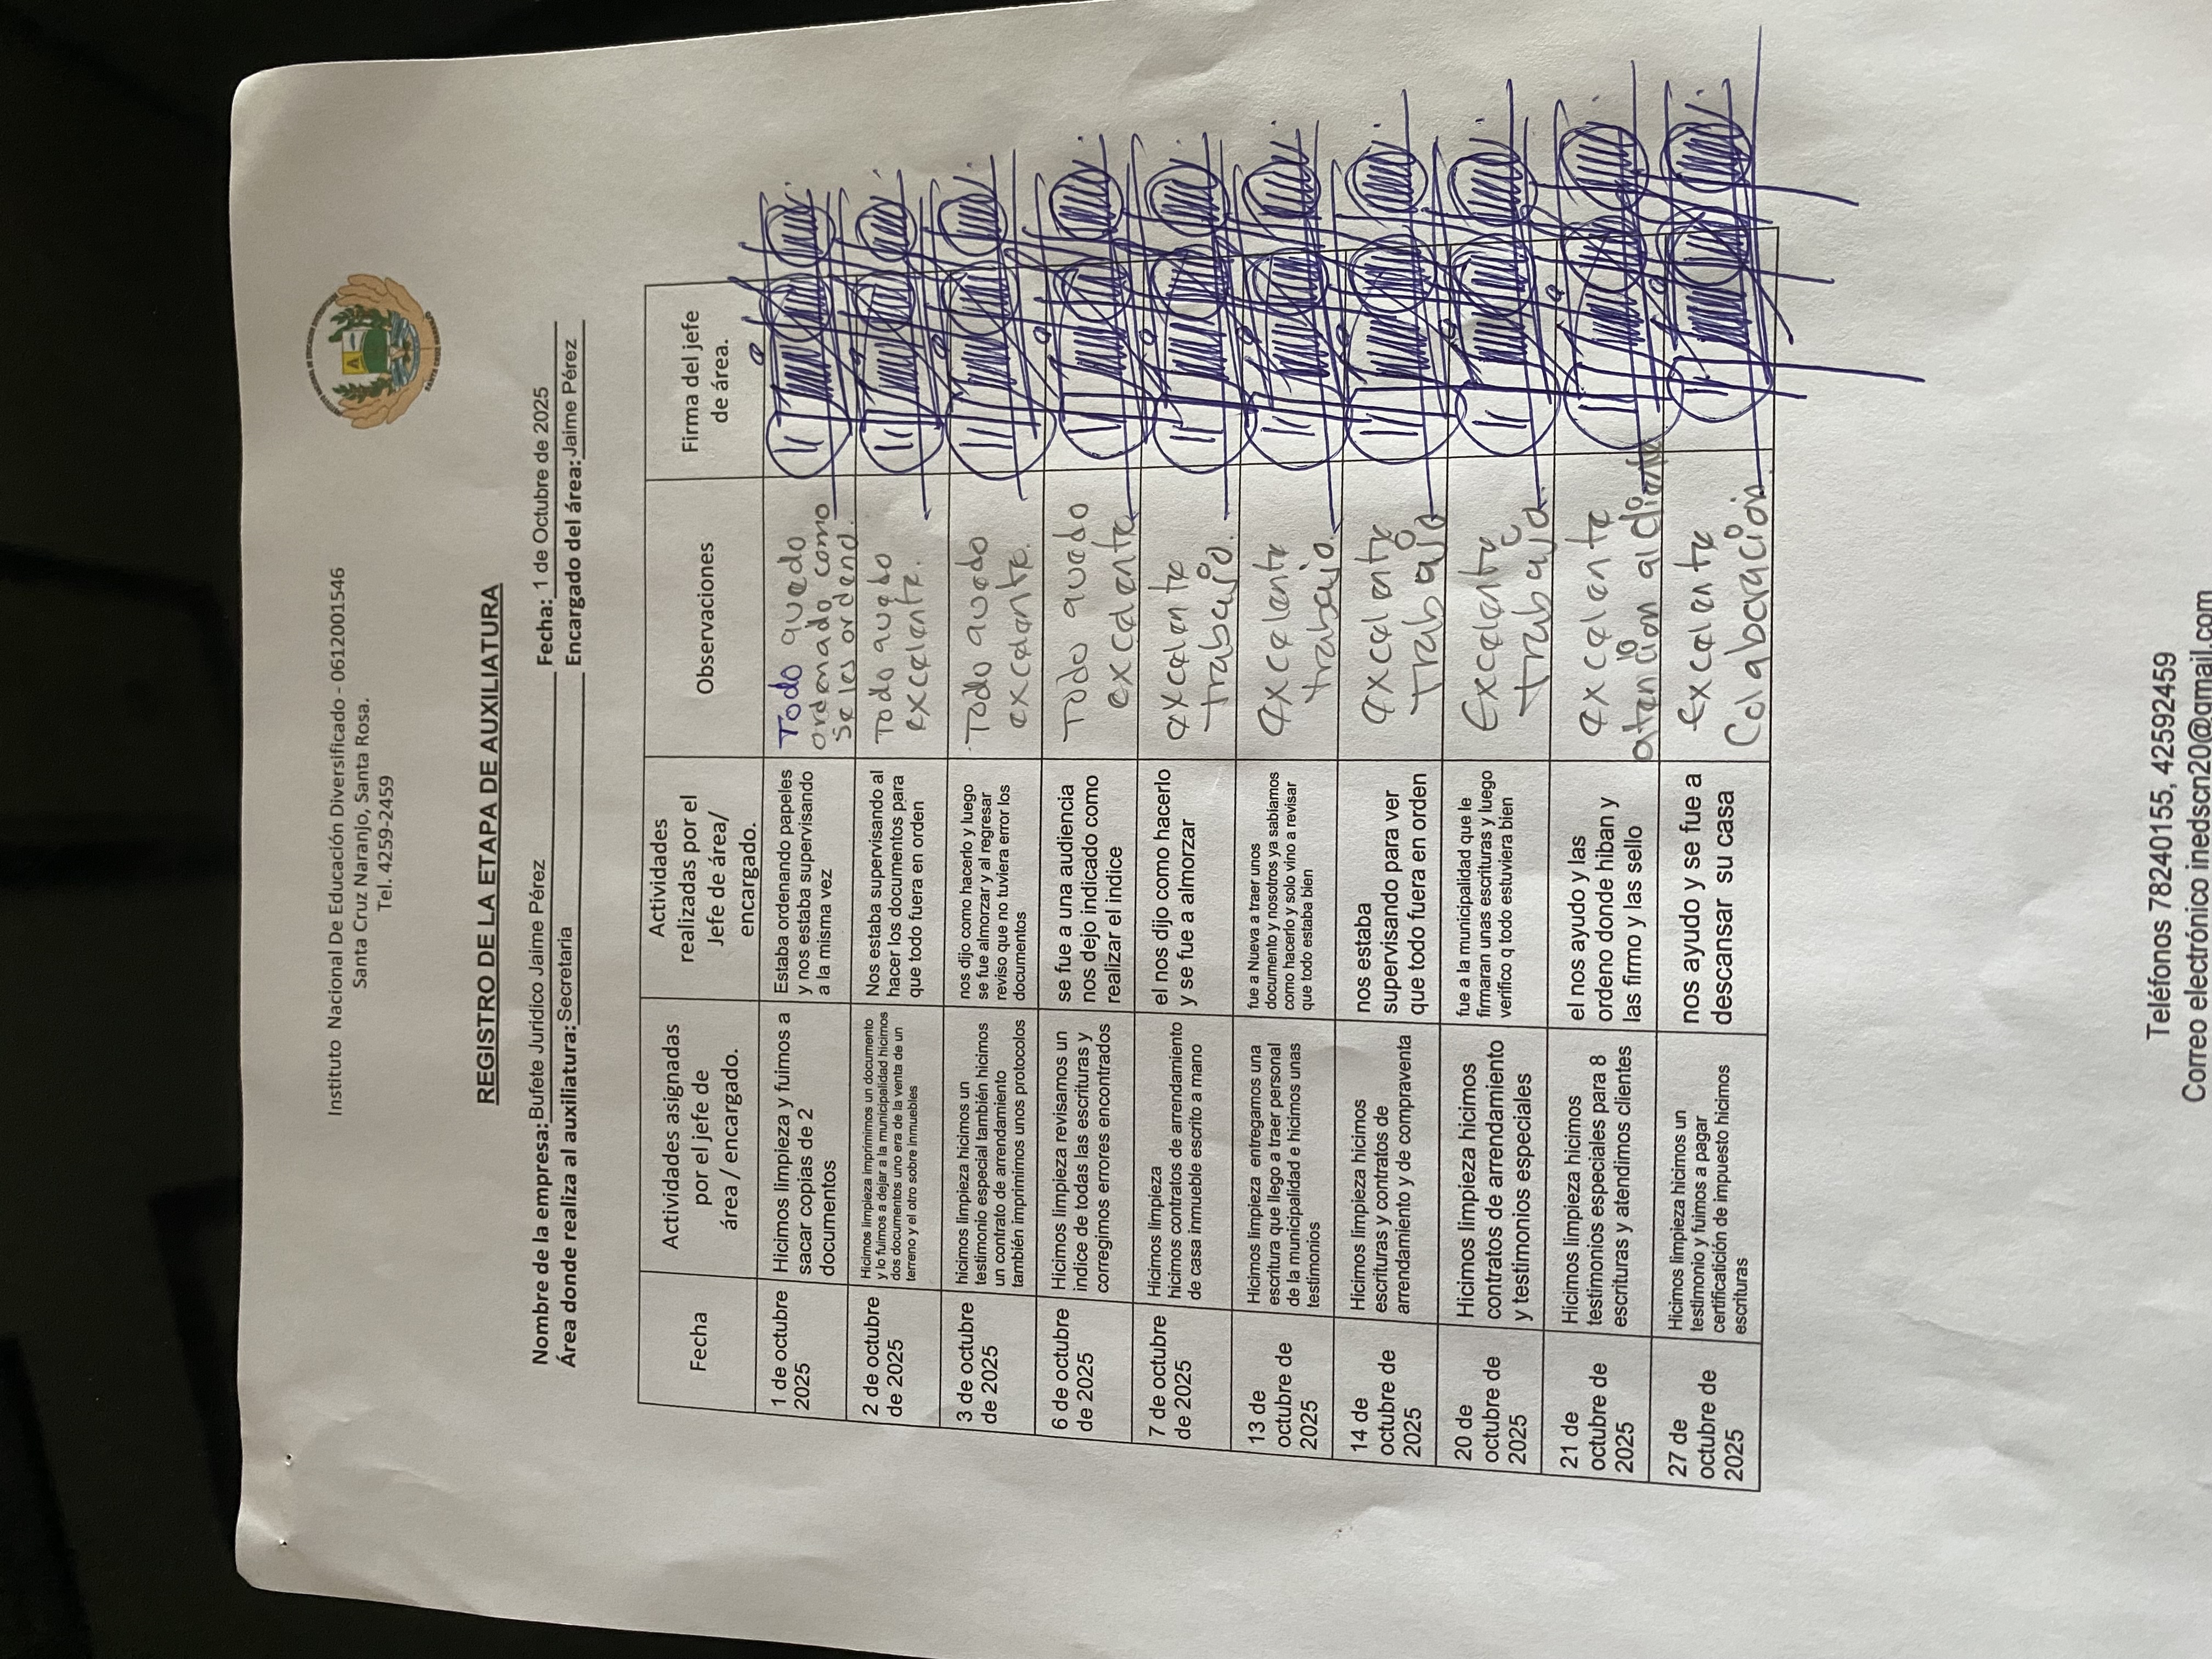 Instituto Nacional De Educación Diversificado - 0612001546
Santa Cruz Naranjo, Santa Rosa.
Tel. 4259-2459
REGISTRO DE LA ETAPA DE AUXILIATURA
Nombre de la empresa: Bufete Juridico Jaime Pérez Fecha: 1 de Octubre de 2025
Área donde realiza al auxiliatura: Secretaria Encargado del área: Jaime Pérez
Fecha
Actividades asignadas
por el jefe de
área / encargado.
Actividades
realizadas por el
Jefe de área/
encargado.
Observaciones
Firma del jefe
de área.
1 de octubre
2025
Hicimos limpieza y fuimos a
sacar copias de 2
documentos
Estaba ordenando papeles
y nos estaba supervisando
a la misma vez
Todo quedo
ordenado como
se les ordeno.
2 de octubre
de 2025
Hicimos limpieza imprimimos un documento
y lo fuimos a dejar a la municipalidad hicimos
dos documentos uno era de la venta de un
terreno y el otro sobre inmuebles
Nos estaba supervisando al
hacer los documentos para
que todo fuera en orden
Todo quedo
excelente.
3 de octubre
de 2025
hicimos limpieza hicimos un
testimonio especial también hicimos
un contrato de arrendamiento
también imprimimos unos protocolos
nos dijo como hacerlo y luego
se fue almorzar y al regresar
reviso que no tuviera error los
documentos
Todo quedo
excelente.
6 de octubre
de 2025
Hicimos limpieza revisamos un
indice de todas las escrituras y
corregimos errores encontrados
se fue a una audiencia
nos dejo indicado como
realizar el indice
Todo quedo
excelente
7 de octubre
de 2025
Hicimos limpieza
hicimos contratos de arrendamiento
de casa inmueble escrito a mano
el nos dijo como hacerlo
y se fue a almorzar
excelente
trabajo.
13 de
octubre de
2025
Hicimos limpieza entregamos una
escritura que llego a traer personal
de la municipalidad e hicimos unas
testimonios
fue a Nueva a traer unos
documento y nosotros ya sabíamos
como hacerlo y solo vino a revisar
que todo estaba bien
excelente
trabajo.
14 de
octubre de
2025
Hicimos limpieza hicimos
escrituras y contratos de
arrendamiento y de compraventa
nos estaba
supervisando para ver
que todo fuera en orden
excelente
trabajo
20 de
octubre de
2025
Hicimos limpieza hicimos
contratos de arrendamiento
y testimonios especiales
fue a la municipalidad que le
firmaran unas escrituras y luego
verifico q todo estuviera bien
Excelente
trabajo
21 de
octubre de
2025
Hicimos limpieza hicimos
testimonios especiales para 8
escrituras y atendimos clientes
el nos ayudo y las
ordeno donde hiban y
las firmo y las sello
excelente
atención al cliente
27 de
octubre de
2025
Hicimos limpieza hicimos un
testimonio y fuimos a pagar
certificatción de impuesto hicimos
escrituras
nos ayudo y se fue a
descansar su casa
excelente
Colaboración
Teléfonos 78240155, 42592459
Correo electrónico inedscn20@gmail.com